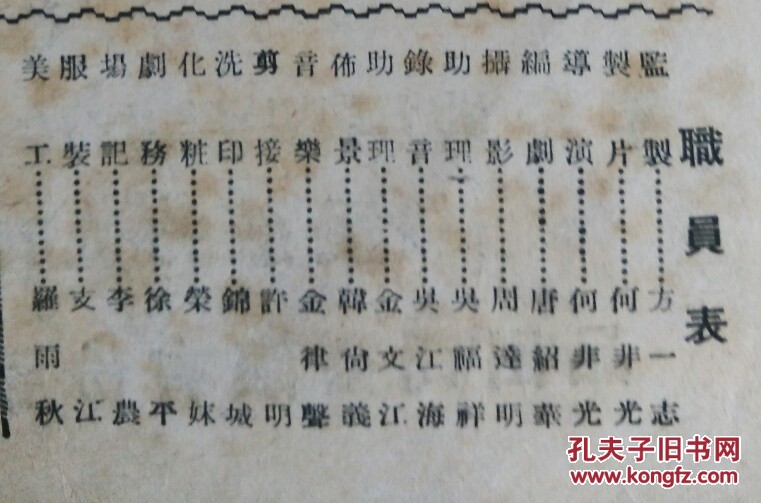 職員表
監製……方一志
製片……何非光
導演……何非光
編劇……唐紹華
攝影……周達明
助理……吳福祥
錄音……吳江海
助理……金文江
佈景……韓尙義
音樂……金律聲
剪接……許明
洗印……錦城
化粧……榮妹
劇務……徐平
場記……李農
服裝……支江
美工……羅雨秋
孔夫子旧书网
www.kongfz.com